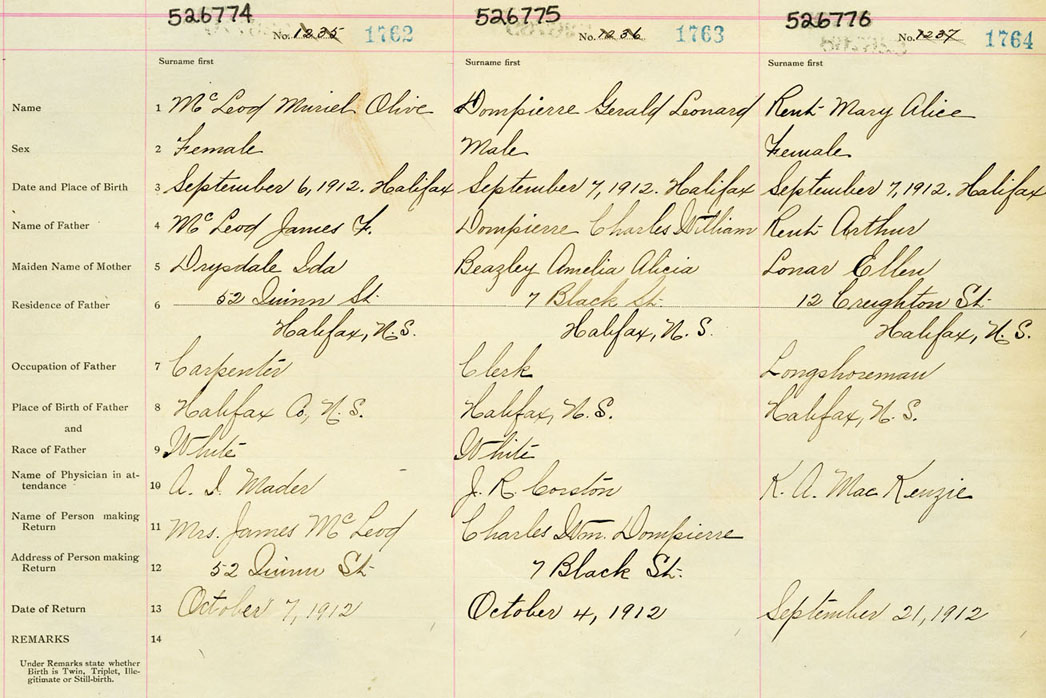 526774 526775 526776
No. 1235 1762 No. 1236 1763 No. 1237 1764
Surname first Surname first Surname first
Name 1 McLeod Muriel Olive Dompierre Gerald Leonard Kent Mary Alice
Sex 2 Female Male Female
Date and Place of Birth 3 September 6, 1912. Halifax September 7, 1912. Halifax September 7, 1912. Halifax
Name of Father 4 McLeod James F. Dompierre Charles William Kent Arthur
Maiden Name of Mother 5 Drysdale Ida Beazley Amelia Alicia Lonar Ellen
Residence of Father 6 52 Quinn St. 7 Black St. 12 Creighton St.
Halifax, N.S. Halifax, N.S. Halifax, N.S.
Occupation of Father 7 Carpenter Clerk Longshoreman
Place of Birth of Father 8 Halifax Co., N.S. Halifax, N.S. Halifax, N.S.
and
Race of Father 9 White White
Name of Physician in at-
tendance 10 A. I. Mader J. R. Corston K. A. MacKenzie
Name of Person making
Return 11 Mrs. James McLeod Charles Wm. Dompierre
Address of Person making
Return 12 52 Quinn St. 7 Black St.
Date of Return 13 October 7, 1912 October 4, 1912 September 21, 1912
REMARKS 14
Under Remarks state whether
Birth is Twin, Triplet, Ille-
gitimate or Still-birth.